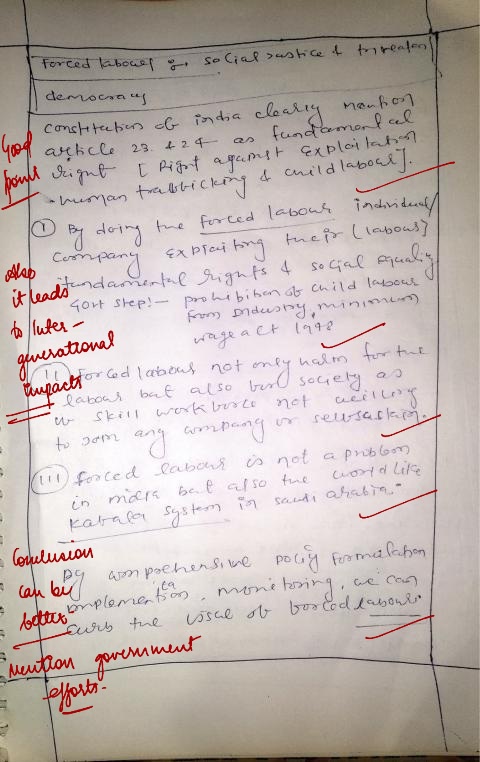 Forced labour & social justice & threaten
democracy
Constitution of india clearly mention
article 23 & 24 as fundamental
right [Right against Exploitation
human trafficking & child labour].
Good
point
① By doing the forced labour individual/
company explaiting their (labour)
fundamental rights & social equality
Govt step:- prohibition of child labour
from industry, minimum
wage act 1948
Also
it leads
to inter-
generational
impacts
(II) Forced labour not only harm for the
labour but also for society as
skill workforce not willing
to join any company or
(III) forced labour is not a problem
in india but also the world like
Kafala system in saudi arabia.
Conclusion
can be
better
By comprehensive policy formulation
implementation, monitoring, we can
curb the issue of forced labour.
Mention government
efforts.